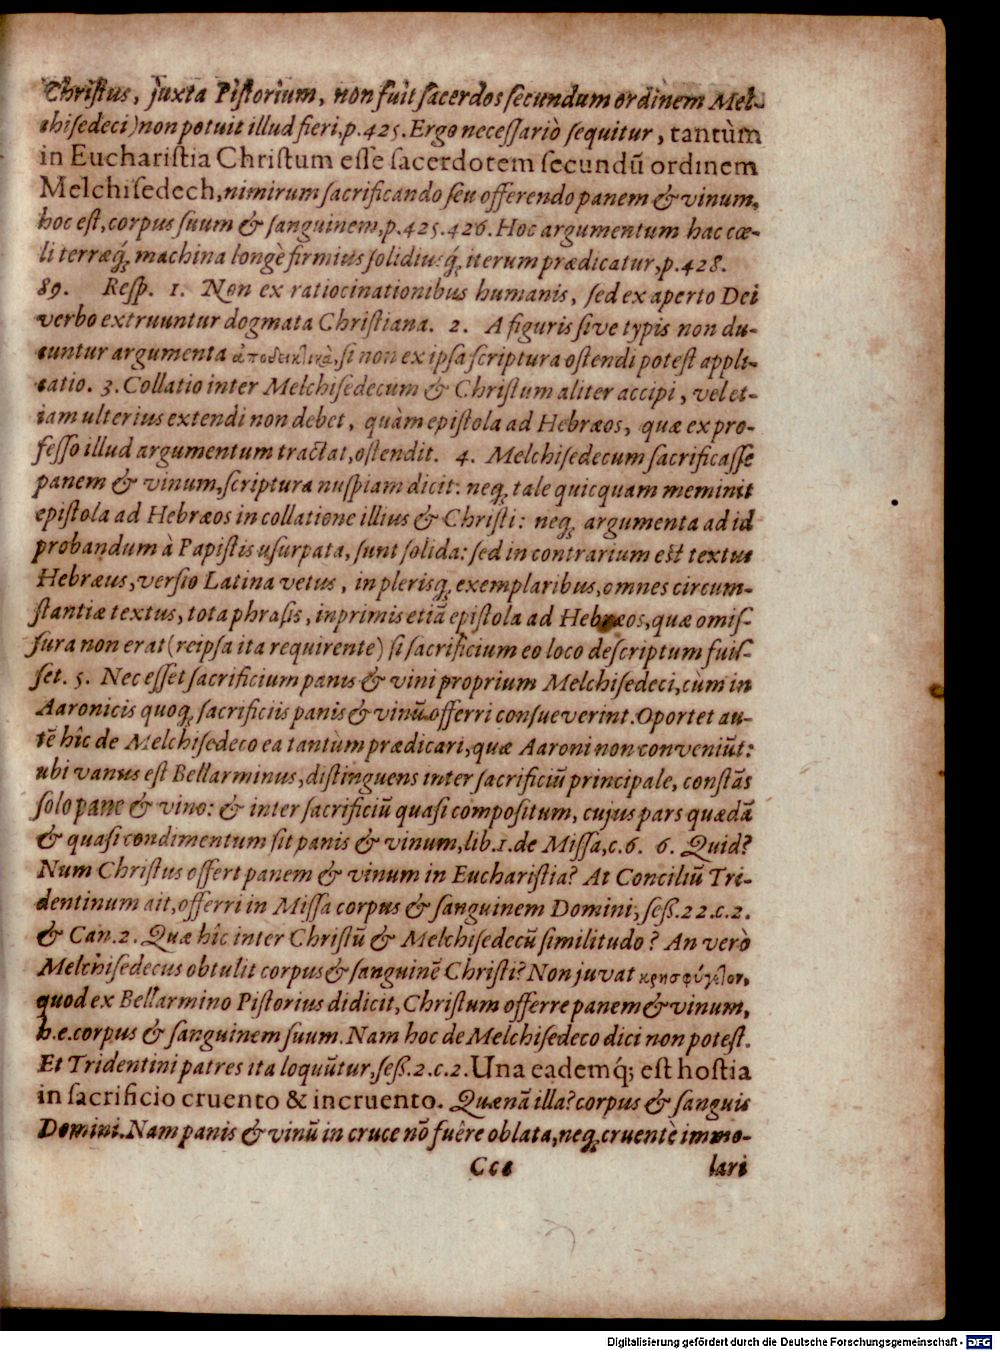 Christus, juxta Pistorium, non fuit sacerdos secundum ordinem Mel-
chisedeci) non potuit illud fieri, p. 425. Ergo necessariò sequitur, tantùm
in Eucharistia Christum esse sacerdotem secundũ ordinem
Melchisedech, nimirum sacrificando seu offerendo panem & vinum,
hoc est, corpus suum & sanguinem, p. 425. 426. Hoc argumentum hac cœ-
li terræq́; machina longè firmius solidiusq́; iterum prædicatur, p. 428.
89. Resp. 1. Non ex ratiocinationibus humanis, sed ex aperto Dei
verbo extruuntur dogmata Christiana. 2. A figuris sive typis non du-
cuntur argumenta ἀποδεικλικὰ, si non ex ipsa scriptura ostendi potest appli-
catio. 3. Collatio inter Melchisedecum & Christum aliter accipi, vel et-
iam ulterius extendi non debet, quàm epistola ad Hebræos, quæ ex pro-
fesso illud argumentum tractat, ostendit. 4. Melchisedecum sacrificasse
panem & vinum, scriptura nuspiam dicit: neq; tale quicquam meminit
epistola ad Hebræos in collatione illius & Christi: neq; argumenta ad id
probandum à Papistis usurpata, sunt solida: sed in contrarium est textus
Hebræus, versio Latina vetus, in plerisq; exemplaribus, omnes circum-
stantiæ textus, tota phrasis, inprimis etiã epistola ad Hebræos, quæ omis-
sura non erat (reipsa ita requirente) si sacrificium eo loco descriptum fuis-
set. 5. Nec esset sacrificium panis & vini proprium Melchisedeci, cùm in
Aaronicis quoq; sacrificiis panis & vinũ offerri consueverint. Oportet au-
tẽ hîc de Melchisedeco ea tantùm prædicari, quæ Aaroni non conveniũt:
ubi vanus est Bellarminus, distinguens inter sacrificiũ principale, constãs
solo pane & vino: & inter sacrificiũ quasi compositum, cujus pars quædã
& quasi condimentum sit panis & vinum, lib. 1. de Missa, c. 6. 6. Quid?
Num Christus offert panem & vinum in Eucharistia? At Conciliũ Tri-
dentinum ait, offerri in Missa corpus & sanguinem Domini, seß. 22. c. 2.
& Can. 2. Quæ hîc inter Christũ & Melchisedecũ similitudo? An verò
Melchisedecus obtulit corpus & sanguinẽ Christi? Non juvat κρησφύγετον,
quod ex Bellarmino Pistorius didicit, Christum offerre panem & vinum,
h. e. corpus & sanguinem suum. Nam hoc de Melchisedeco dici non potest.
Et Tridentini patres ita loquũtur, seß. 2. c. 2. Una eademq́; est hostia
in sacrificio cruento & incruento. Quænã illa? corpus & sanguis
Domini. Nam panis & vinũ in cruce nõ fuêre oblata, neq; cruentè immo-
Ccc lari
Digitalisierung gefördert durch die Deutsche Forschungsgemeinschaft - DFG